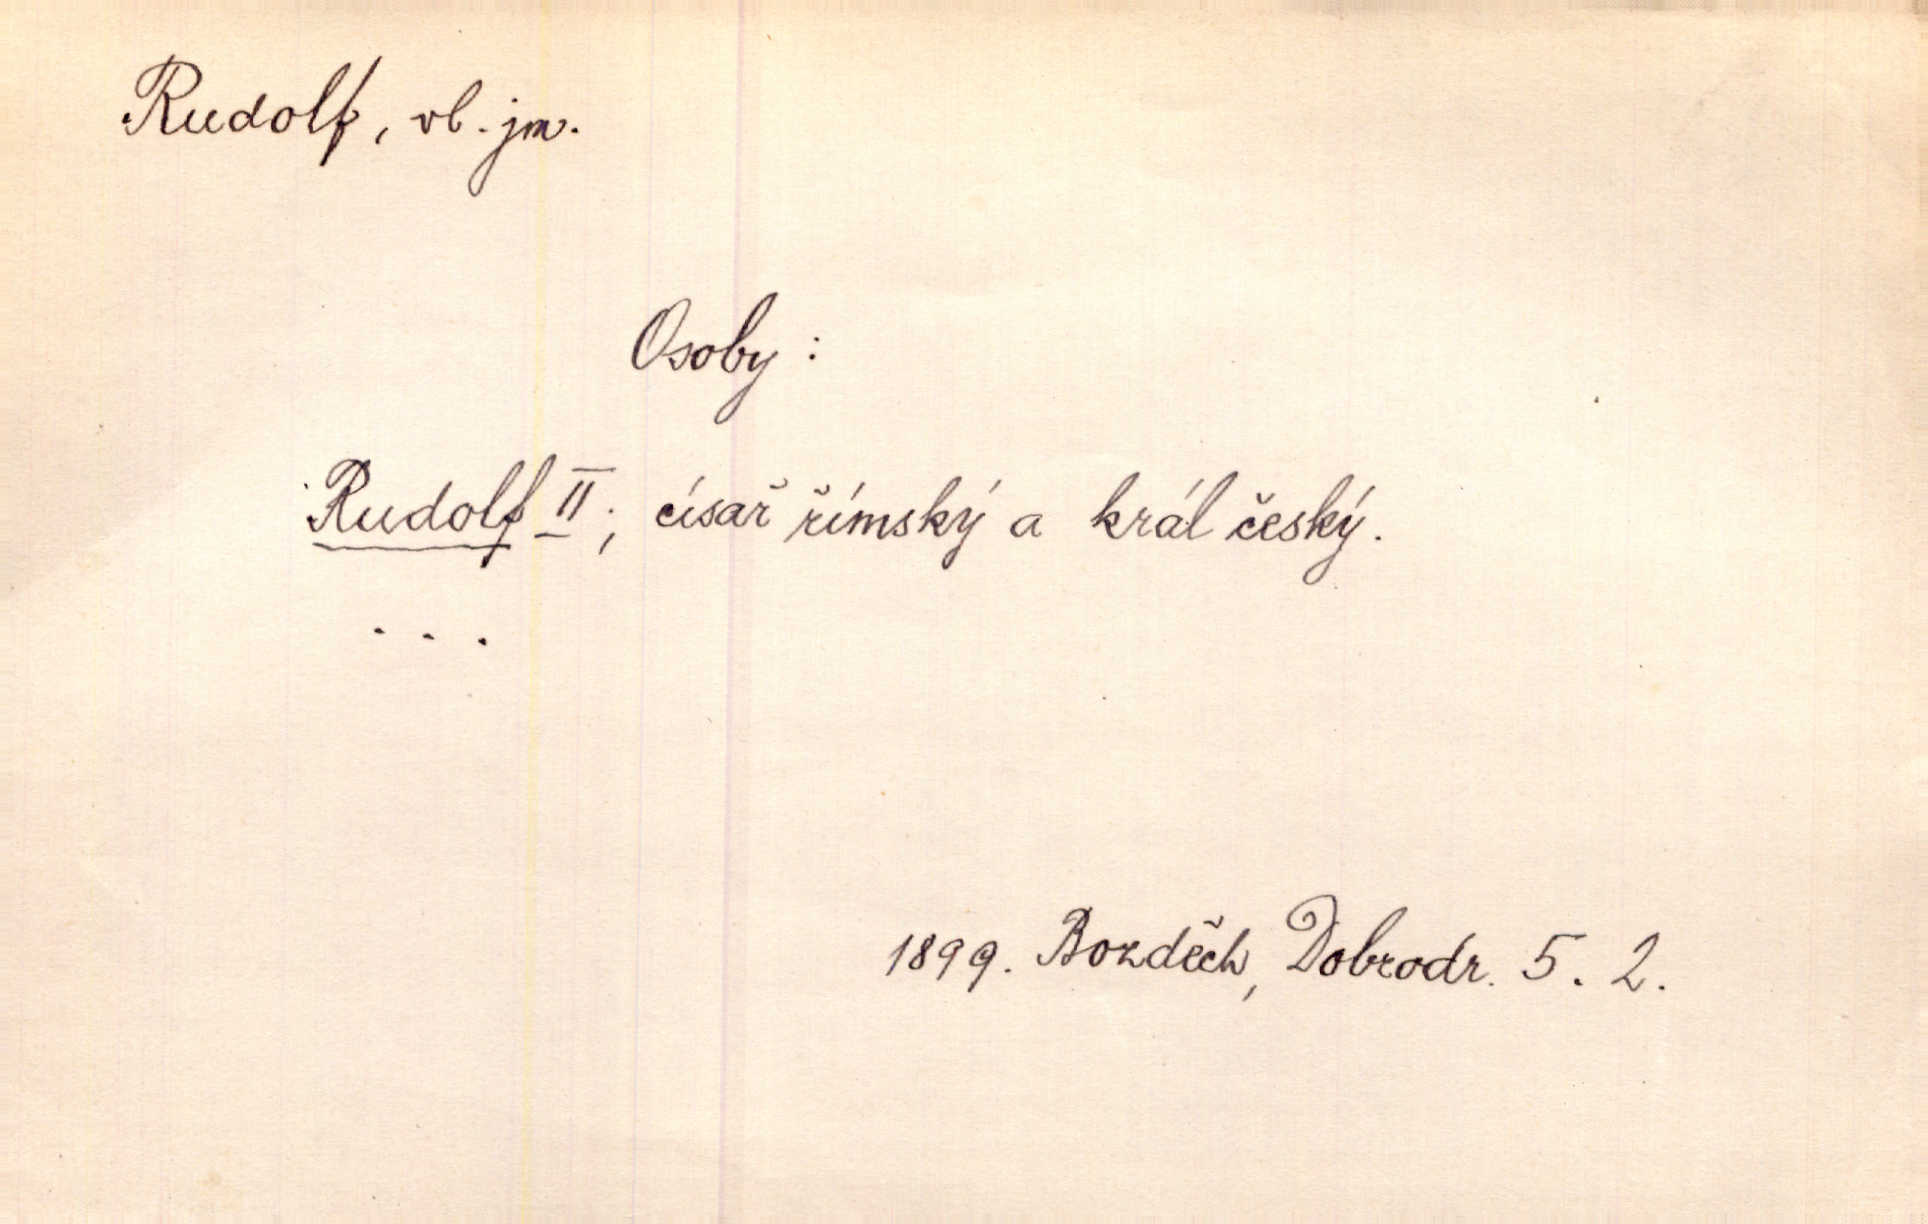 Rudolf, vl. jm.
Osoby :
Rudolf II.; císař římský a král český.
. . .
1899. Bozděch, Dobrodr. 5. 2.